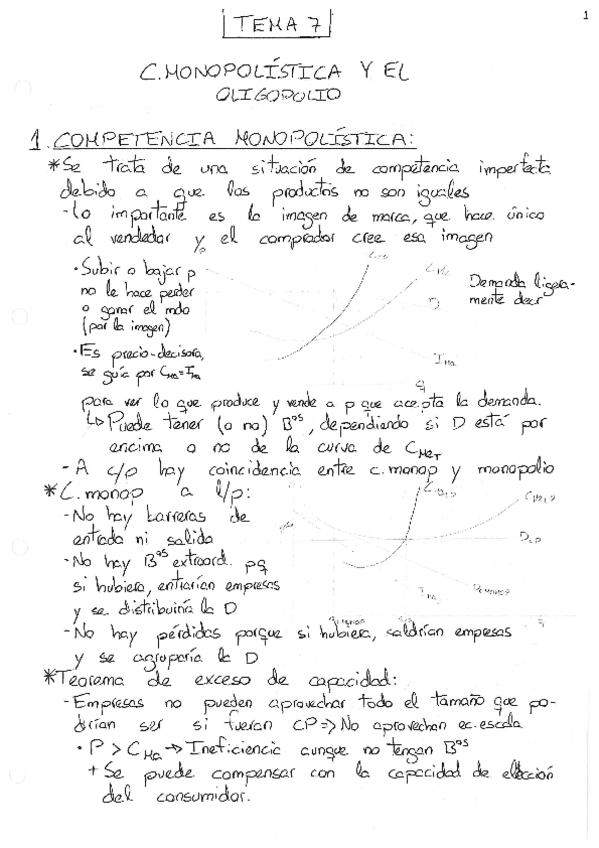 1
TEMA 7
C.MONOPOLÍSTICA Y EL
OLIGOPOLIO
1. COMPETENCIA MONOPOLÍSTICA:
*Se trata de una situación de competencia imperfecta
debido a que los productos no son iguales
-Lo importante es la imagen de marca, que hace único
al vendedor y el comprador cree esa imagen
·Subir o bajar p
no le hace perder
o ganar el mdo
(por la imagen)
·Es precio-decisora,
se guía por CMa=IMa
P
CMa
CMe
D
IMa
q
Demanda ligera-
mente decr
para ver lo que produce y vende a p que acepta la demanda.
↳Puede tener (o no) Bºs, dependiendo si D está por
encima o no de la curva de CMeT
-A c/p hay coincidencia entre c.monop y monopolio
*C.monop a l/p:
-No hay barreras de
entrada ni salida
-No hay Bºs extraord. pq
si hubiera, entrarían empresas
y se distribuiría la D
CMeLP
DLP
IMa
q
-No hay pérdidas porque si hubiera, saldrían empresas
y se agruparía la D
*Teorema de exceso de capacidad:
-Empresas no pueden aprovechar todo el tamaño que po-
drían ser si fueran CP=>No aprovechan ec.escala
·P > CMa → Ineficiencia aunque no tengan Bºs
+ Se puede compensar con la capacidad de elección
del consumidor.